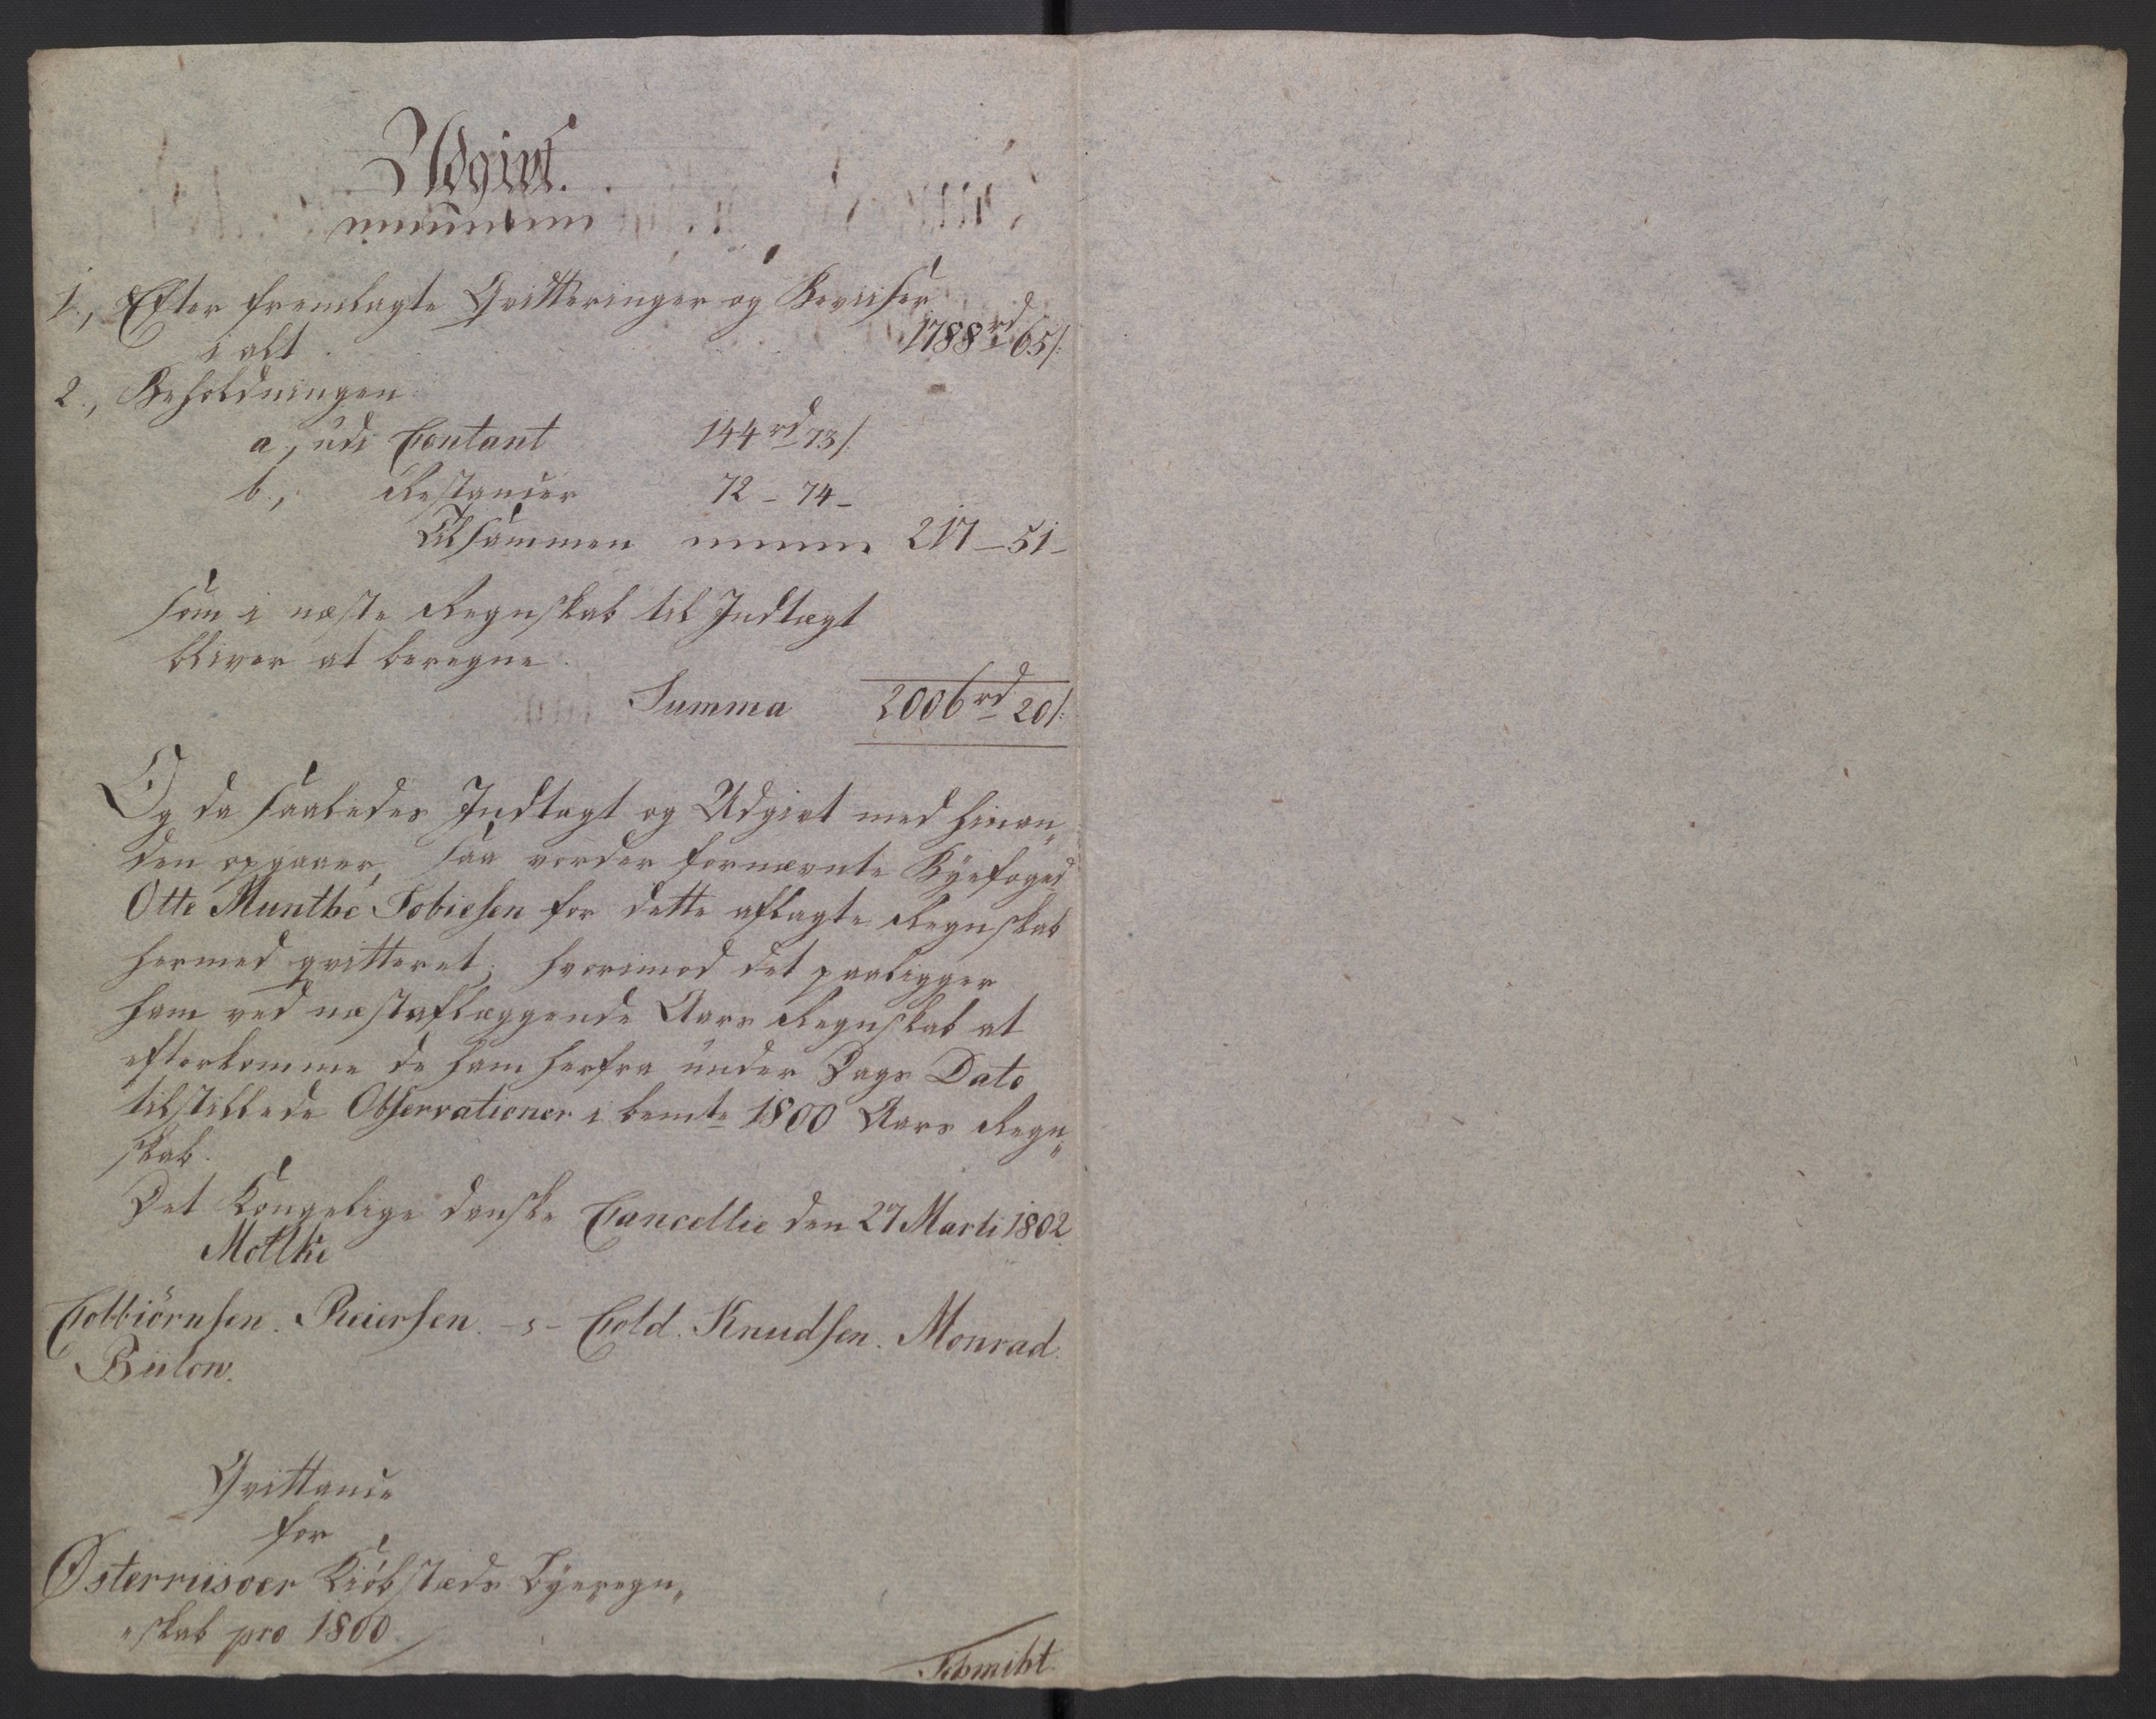 Udgivt.
1., Efter fremlagte Qvitteringer og Beviiser
i alt 1788 rd 65 s:
2., Beholdningen
a, udi Contant 144 rd 73 s
b., Restancer 72 - 74 -
Tilsammen 217 - 51 -
som i næste Regnskab til Indtægt
bliver at beregne.
Summa 2006 rd 20 s:
Og da saaledes Indtægt og Udgivt med hinan„
den opgaaer, saa vorder fornævnte Byefoged
Otte Munthe Tobiesen for dette aflagte Regnskab
hermed qvitteret; hvorimod det paaligger
ham ved næstaflæggende Aars Regnskab at
efterkomme de ham herfra under Dags Dato
tilstillede Observationer i bemte 1800 Aars Regn„
skab.
Det Kongelige danske Cancellie den 27 Marti 1802.
Moltke
Colbiörnsen. Reiersen. -s- Cold. Knudsen. Monrad.
Bülow.
Qvittance
for
Østerriisoer Kiöbstæds Byeregn„
„skab pro 1800.
Schmidt